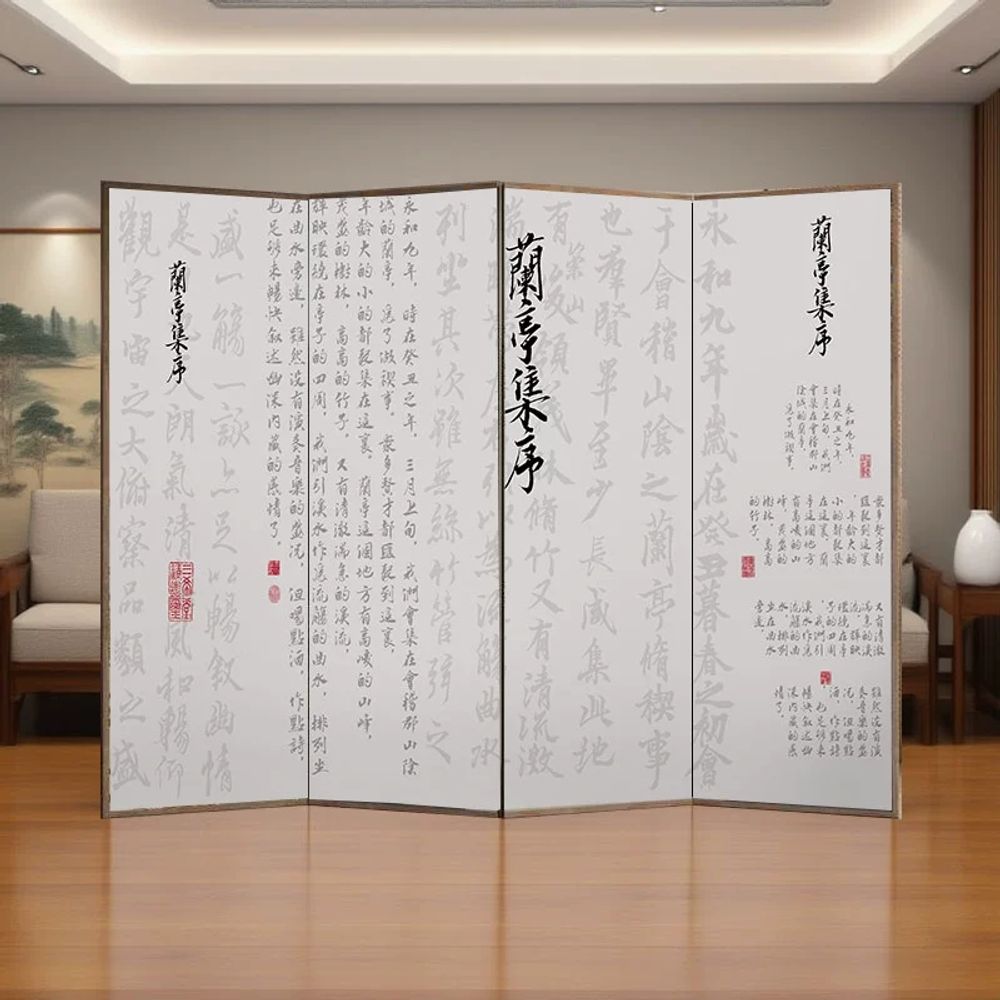 蘭亭集序
永和九年，
時在癸丑之年，
三月上旬，我們
會集在會稽郡山
陰城的蘭亭，
為了做禊事。
衆多賢才都
匯聚到這裏
，年齡大的
小的都聚集
在這裏。蘭
亭這個地方
有高峻的山
峰，茂盛的
樹林，高高
的竹子。
又有清澈
湍急的溪
流，輝映
環繞在亭
子的四周
，我們引
溪水作為
流觴的曲
水，排列
坐在曲水
旁邊，
雖然沒有演
奏音樂的盛
況，但喝點
酒，作點詩
，也足够來
暢快敘述幽
深內藏的感
情了。
永和九年歲在癸丑暮春之初會
于會稽山陰之蘭亭脩稧事
也羣賢畢至少長咸集此地
有崇山峻領茂林脩竹又有清流激
蘭亭集序
湍 左右引以為流觴曲水
列坐其次雖無絲竹管弦之
永和九年，時在癸丑之年，三月上旬，我們會集在會稽郡山陰
城的蘭亭，為了做禊事。衆多賢才都匯聚到這裏，
年齡大的小的都聚集在這裏。蘭亭這個地方有高峻的山峰，
茂盛的樹林，高高的竹子。又有清澈湍急的溪流，
輝映環繞在亭子的四周，我們引溪水作為流觴的曲水，排列坐
在曲水旁邊，雖然沒有演奏音樂的盛況，但喝點酒，作點詩，
也足够來暢快敘述幽深內藏的感情了。
盛一觴一詠亦足以暢敘幽情
蘭亭集序
是 也天朗氣清 風和暢仰
觀宇宙之大俯察品類之盛